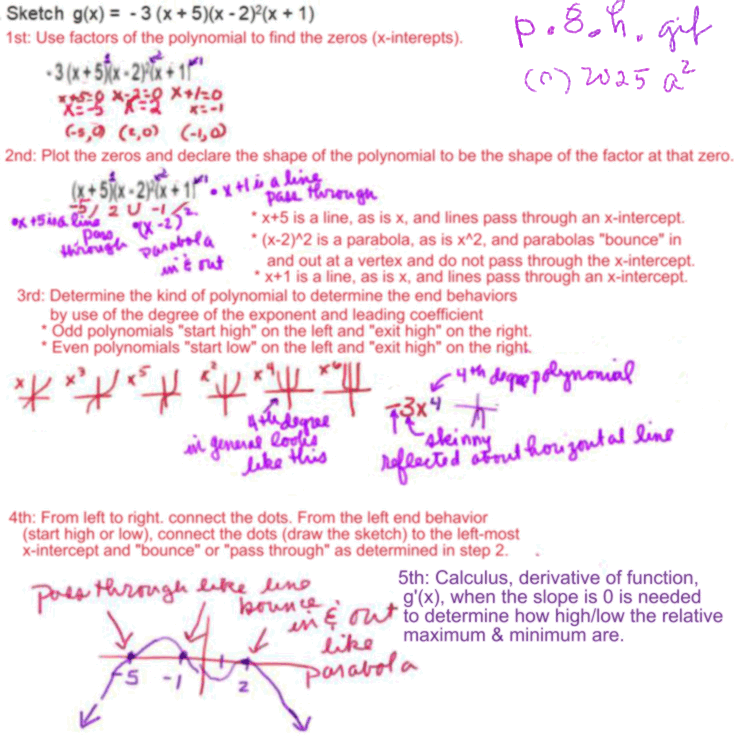 Sketch g(x) = - 3 (x + 5)(x - 2)²(x + 1)
p.8.h. gif
(c) 2025 a²
1st: Use factors of the polynomial to find the zeros (x-interepts).
- 3 (x + 5)(x - 2)²(x + 1)
x+5=0 x-2=0 x+1=0
x=-5 x=2 x=-1
(-5,0) (2,0) (-1,0)
2nd: Plot the zeros and declare the shape of the polynomial to be the shape of the factor at that zero.
(x + 5)(x - 2)²(x + 1)
• x+1 is a line
pass through
-5 / 2 U -1 /
• x+5 is a line
pass
through
• (x-2)²
parabola
in & out
* x+5 is a line, as is x, and lines pass through an x-intercept.
* (x-2)^2 is a parabola, as is x^2, and parabolas "bounce" in
and out at a vertex and do not pass through the x-intercept.
* x+1 is a line, as is x, and lines pass through an x-intercept.
3rd: Determine the kind of polynomial to determine the end behaviors
by use of the degree of the exponent and leading coefficient
* Odd polynomials "start high" on the left and "exit high" on the right.
* Even polynomials "start low" on the left and "exit high" on the right.
x x³ x⁵ x² x⁴ x⁶
4th degree
in general looks
like this
4th degree polynomial
-3x⁴
skinny
reflected about horizontal line
4th: From left to right. connect the dots. From the left end behavior
(start high or low), connect the dots (draw the sketch) to the left-most
x-intercept and "bounce" or "pass through" as determined in step 2.
pass through like line
bounce
in & out
like
parabola
-5 -1 2
5th: Calculus, derivative of function,
g'(x), when the slope is 0 is needed
to determine how high/low the relative
maximum & minimum are.